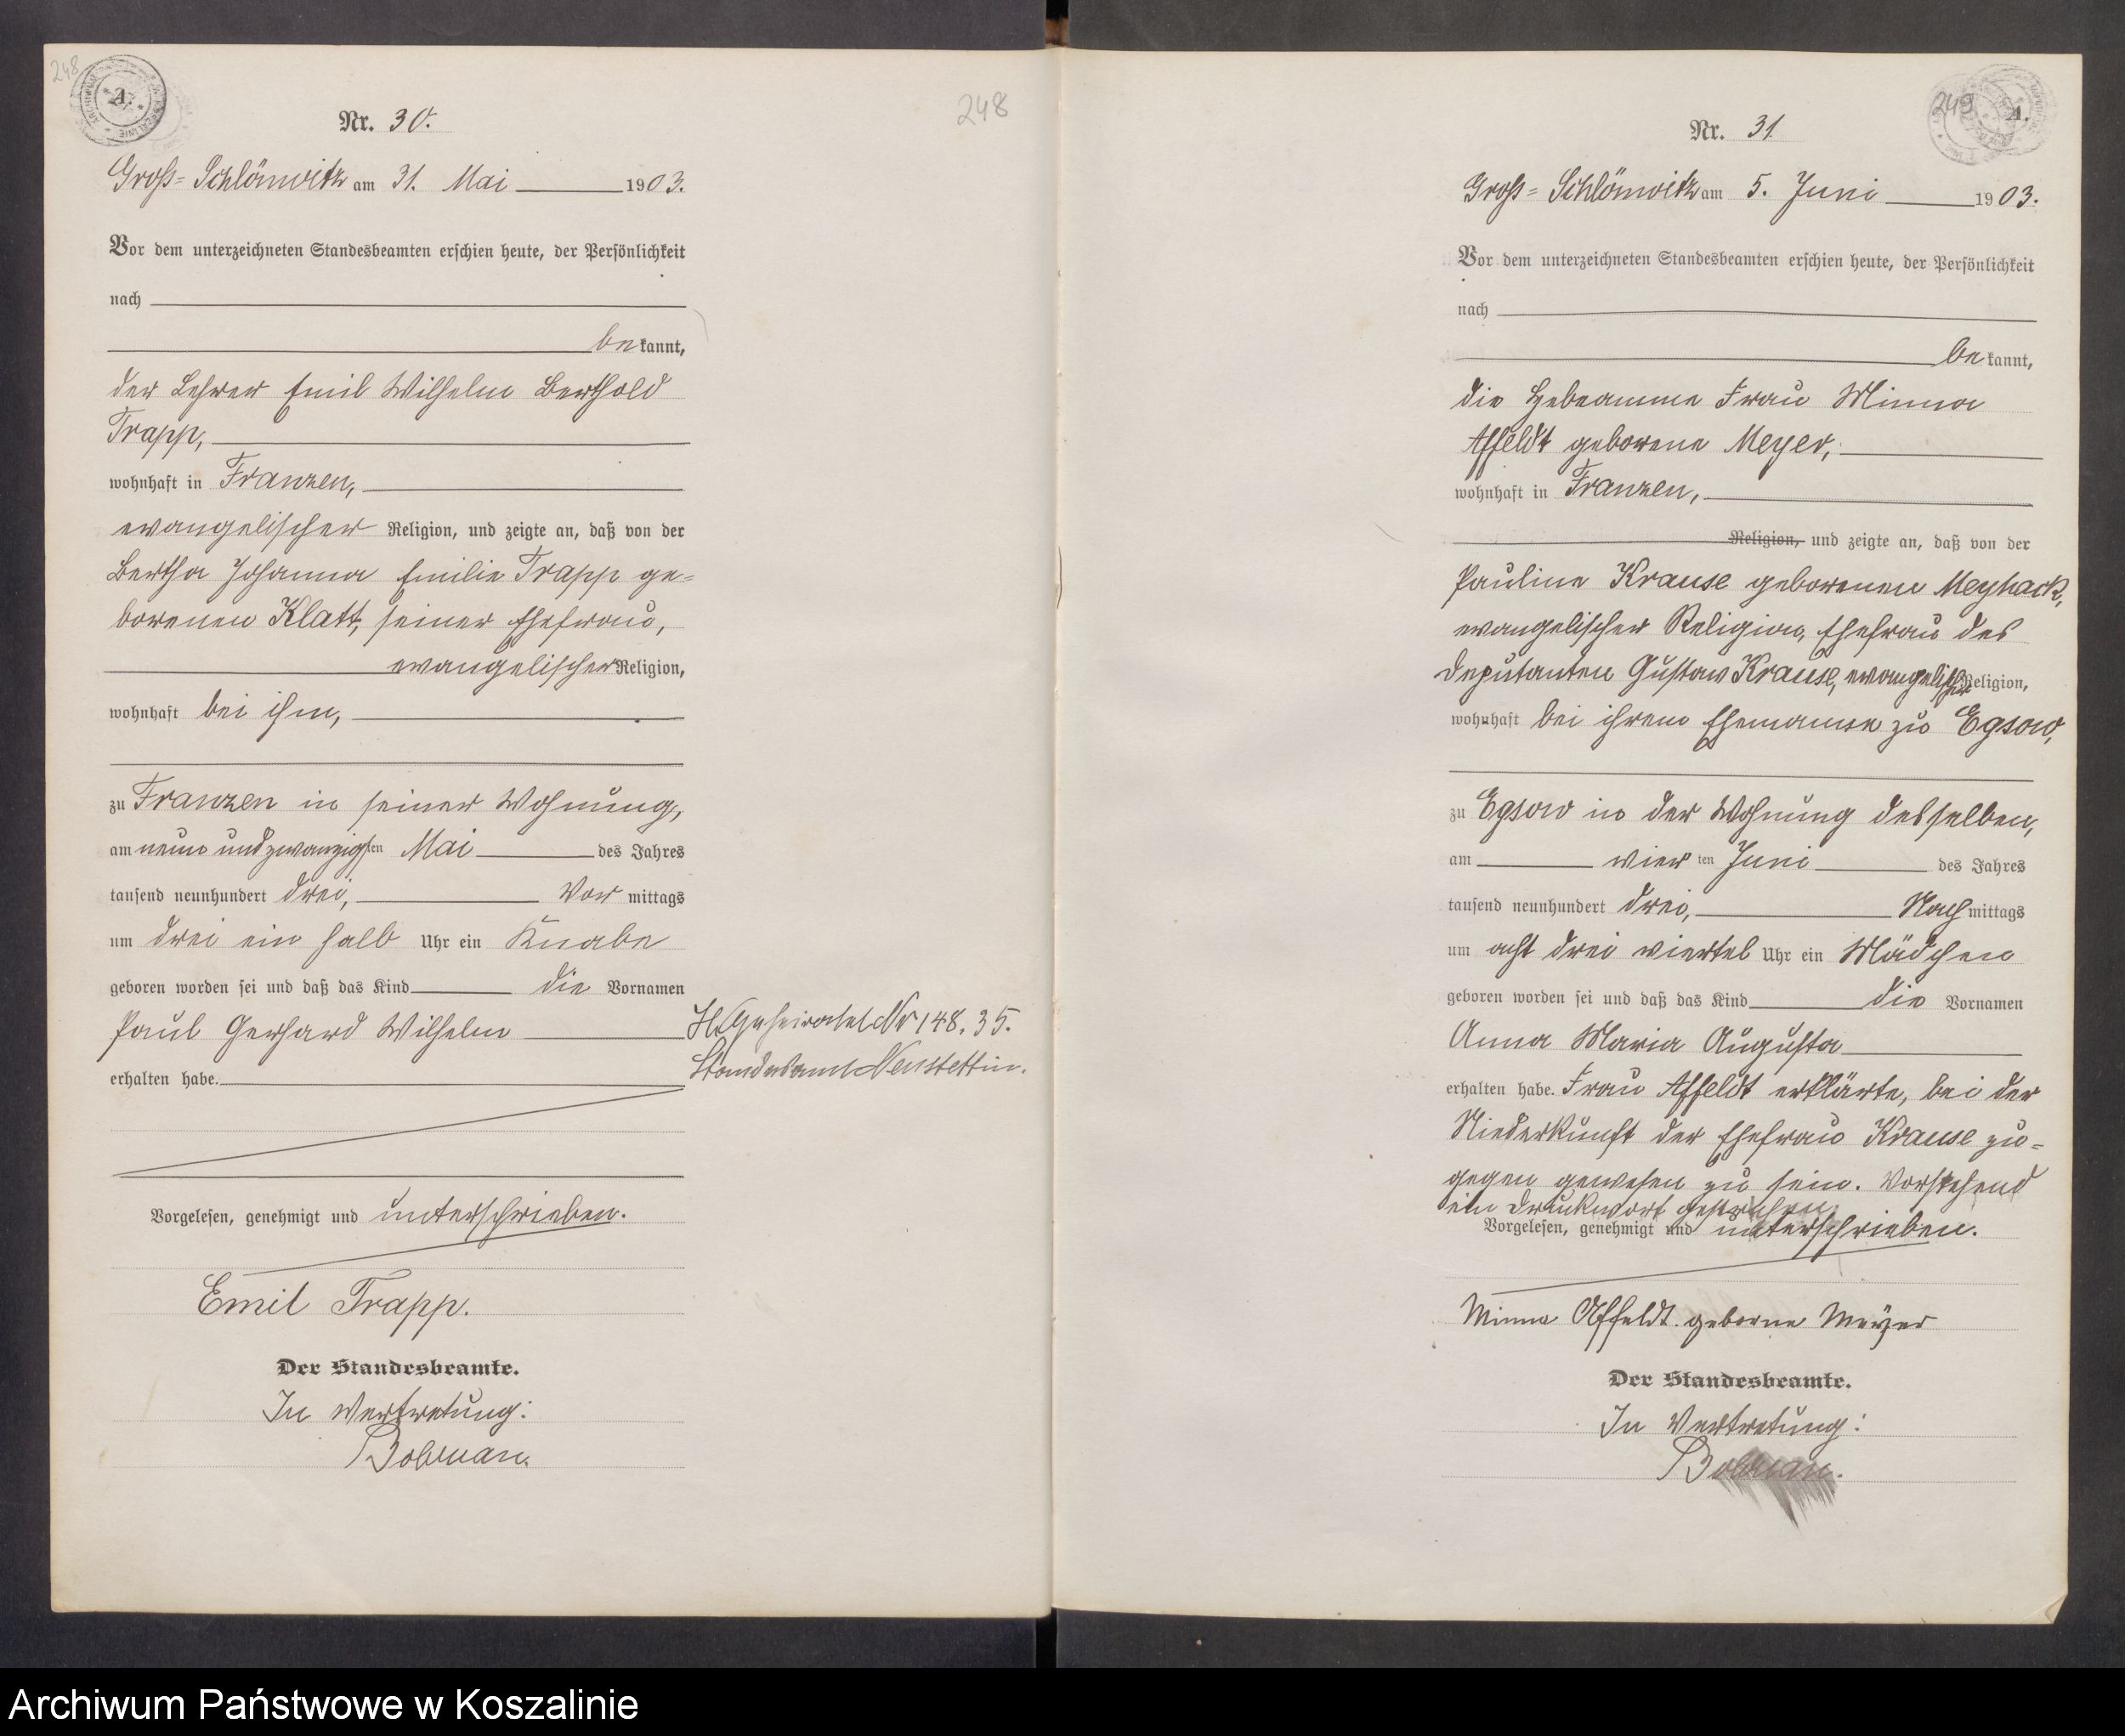 248
A.
Nr. 30.
Groß-Schlönwitz am 31. Mai 1903.
Vor dem unterzeichneten Standesbeamten erschien heute, der Persönlichkeit
nach
bekannt,
der Lehrer Emil Wilhelm Berthold
Trapp,
wohnhaft in Franzen,
evangelischer Religion, und zeigte an, daß von der
Bertha Johanna Emilie Trapp ge-
borenen Klatt, seiner Ehefrau,
evangelischer Religion,
wohnhaft bei ihm,
zu Franzen in seiner Wohnung,
am neun und zwanzigsten Mai des Jahres
tausend neunhundert drei, Vor mittags
um drei ein halb Uhr ein Knabe
geboren worden sei und daß das Kind die Vornamen
Paul Gerhard Wilhelm
erhalten habe.
H. Geheiratet Nr 148. 35.
Standesamt Neustettin.
Vorgelesen, genehmigt und unterschrieben.
Emil Trapp.
Der Standesbeamte.
In Vertretung:
248
249
A.
Nr. 31
Groß-Schlönwitz am 5. Juni 1903.
Vor dem unterzeichneten Standesbeamten erschien heute, der Persönlichkeit
nach
bekannt,
die Hebeamme Frau Minna
Affeldt geborene Meyer,
wohnhaft in Franzen,
Religion, und zeigte an, daß von der
Pauline Krause geborenen Meyhack,
evangelischer Religion, Ehefrau des
Deputanten Gustav Krause, evangelischer Religion,
wohnhaft bei ihrem Ehemanne zu Egsow,
zu Egsow in der Wohnung desselben,
am vier ten Juni des Jahres
tausend neunhundert drei, Nach mittags
um acht drei viertel Uhr ein Mädchen
geboren worden sei und daß das Kind die Vornamen
Anna Maria Augusta
erhalten habe. Frau Affeldt erklärte, bei der
Niederkunft der Ehefrau Krause zu-
gegen gewesen zu sein. Vorstehend
ein Druckwort gestrichen.
Vorgelesen, genehmigt und unterschrieben.
Minna Affeldt geborne Meÿer
Der Standesbeamte.
In Vertretung:
Archiwum Państwowe w Koszalinie